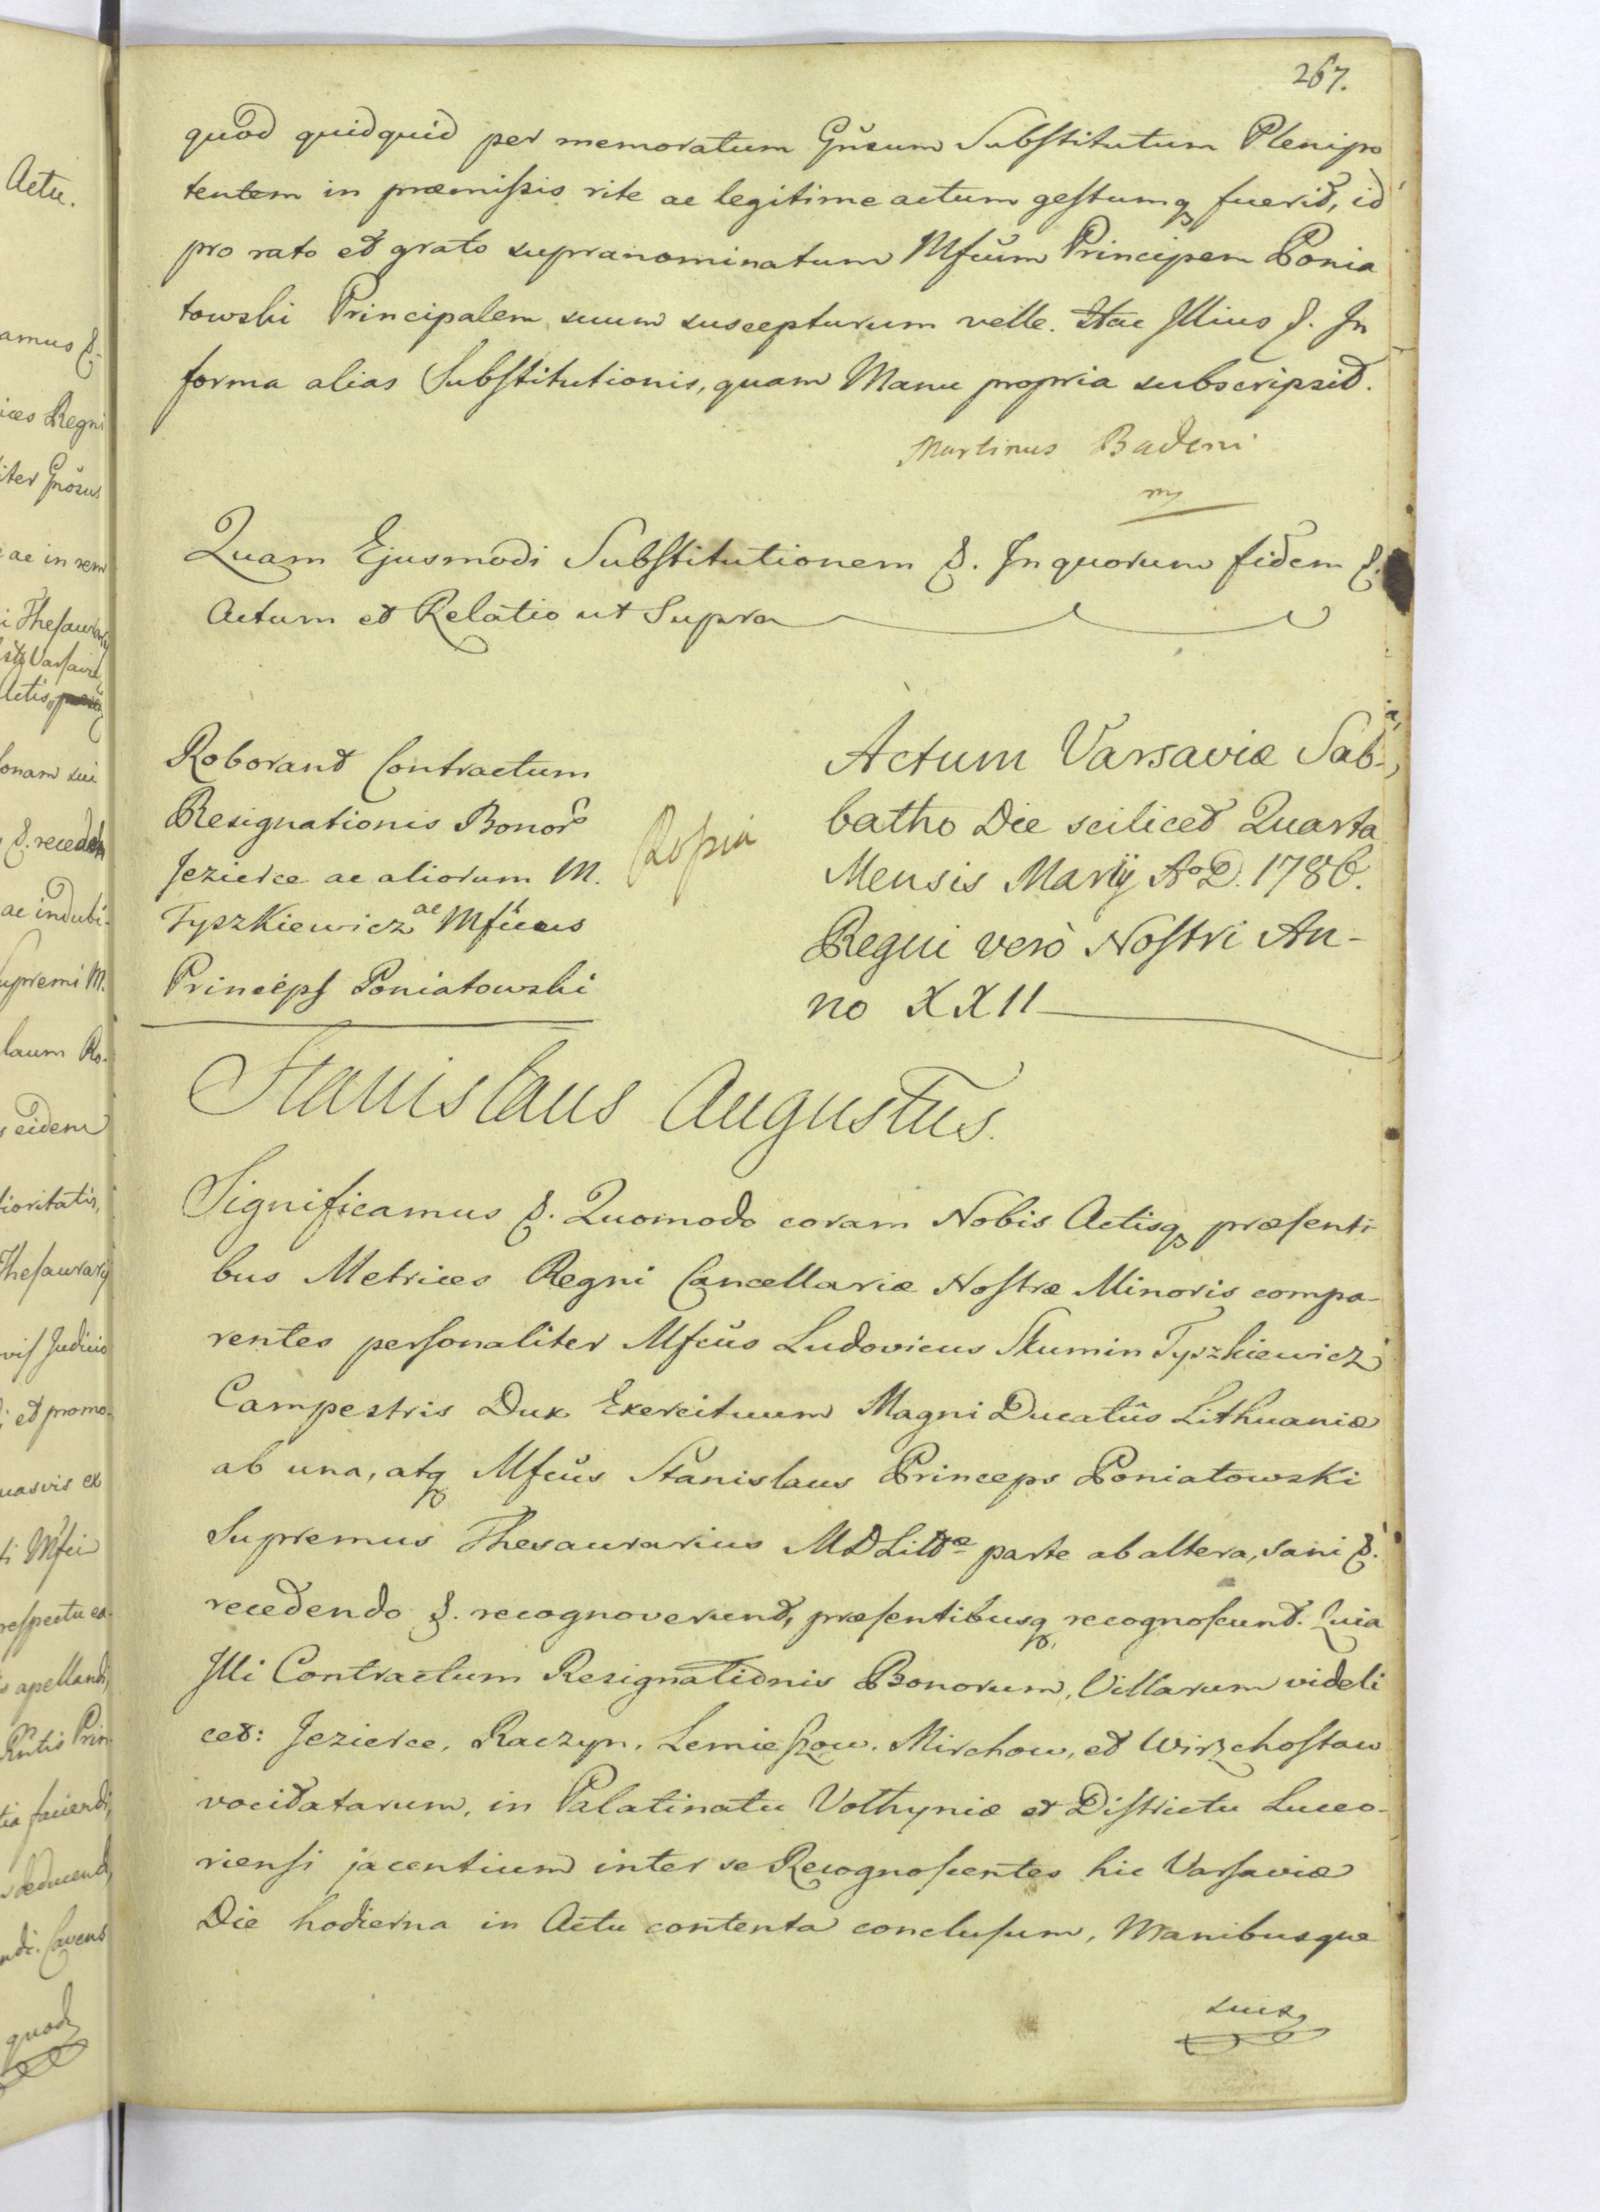 267.
quod quidquid per memoratum Gnrum Substitutum Plenipo
tentem in præmissis rite ac legitime actum gestumq fuerit, id
pro rato et grato supranominatum Mfcum Principem Ponia
towski Principalem suum suscepturum velle. Hac Illius &. In
forma alias Substitutionis, quam Manu propria subscripsit.
Martinus Badeni
mp
Quam Ejusmodi Substitutionem &. In quorum fidem &.
Actum et Relatio ut Supra
Roborant Contractum
Resignationis Bonor
Jezierce ac aliorum M.
Tyszkiewicz ac Mfcus
Princeps Poniatowski
Rossia
Actum Varsaviæ Sab-
batho Die scilicet Quarta
Mensis Martij Ao D. 1786.
Regni verò Nostri An-
no XXII
Stanislaus Augustus.
Significamus &. Quomodo coram Nobis Actisq præsenti
bus Metrices Regni Cancellariæ Nostræ Minoris compa-
rentes personaliter Mfcus Ludovicus Skumin Tyszkiewicz
Campestris Dux Exercituum Magni Ducatûs Lithuaniæ
ab una, atq Mfcus Stanislaus Princeps Poniatowski
Supremus Thesaurarius MDLittæ parte ab altera, sani &.
recedendo &. recognoverunt, præsentibusq recognoscunt. Quia
Illi Contractum Resignationis Bonorum, Villarum videli
cet: Jezierce, Raczyn, Lemieszow, Mirchow, et Wirzchostaw
vocitatarum, in Palatinatu Volhyniæ et Districtu Luceo-
riensi jacentium inter se Recognoscentes hic Varsaviæ
Die hodierna in Actu contenta conclusum, Manibusque
suis
Actu.
amus &
ices Regni
iter Gnosus
ac in rem
i Thesaurarij
Actis
onam sui
&. recedeh
ac indubi-
upremi M.
laum Ro-
eidem
ioritatis,
Thesaurarij
vis Judicio
et promo-
uasvis ex
ti Mfci
respectu ea-
s apellandi,
Prin
tia faciendi,
deducend
ndi. Cavens
quod